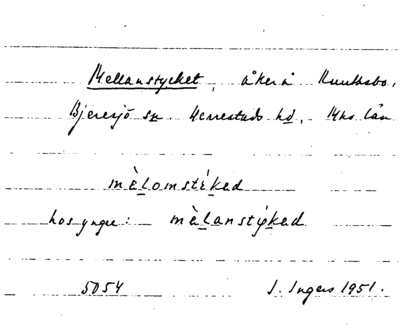 Mellanstycket, åker å Munkabo,
Bjeresjö sn Herrestads hd, Mhs län
mèlomstéked
hos yngre: mèlanstýked
5054 I. Ingers 1951.